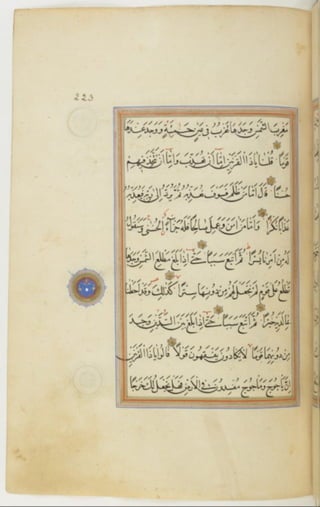 223
مغرب الشمس وجدها تغرب في عين حمئة ووجد عندها
قوما قلنا ياذا القرنين إما أن تعذب وإما أن تتخذ فيهم
حسنا قال أما من ظلم فسوف نعذبه ثم يرد إلى ربه فيعذبه
عذابا نكرا وأما من آمن وعمل صالحا فله جزاء الحسنى وسنقول
له من أمرنا يسرا ثم أتبع سببا حتى إذا بلغ مطلع الشمس وجدها
تطلع على قوم لم نجعل لهم من دونها سترا كذلك وقد أحطنا
بما لديه خبرا ثم أتبع سببا حتى إذا بلغ بين السدين وجد
من دونهما قوما لا يكادون يفقهون قولا قالوا ياذا القرنين
إن ياجوج وماجوج مفسدون في الأرض فهل نجعل لك خرجا